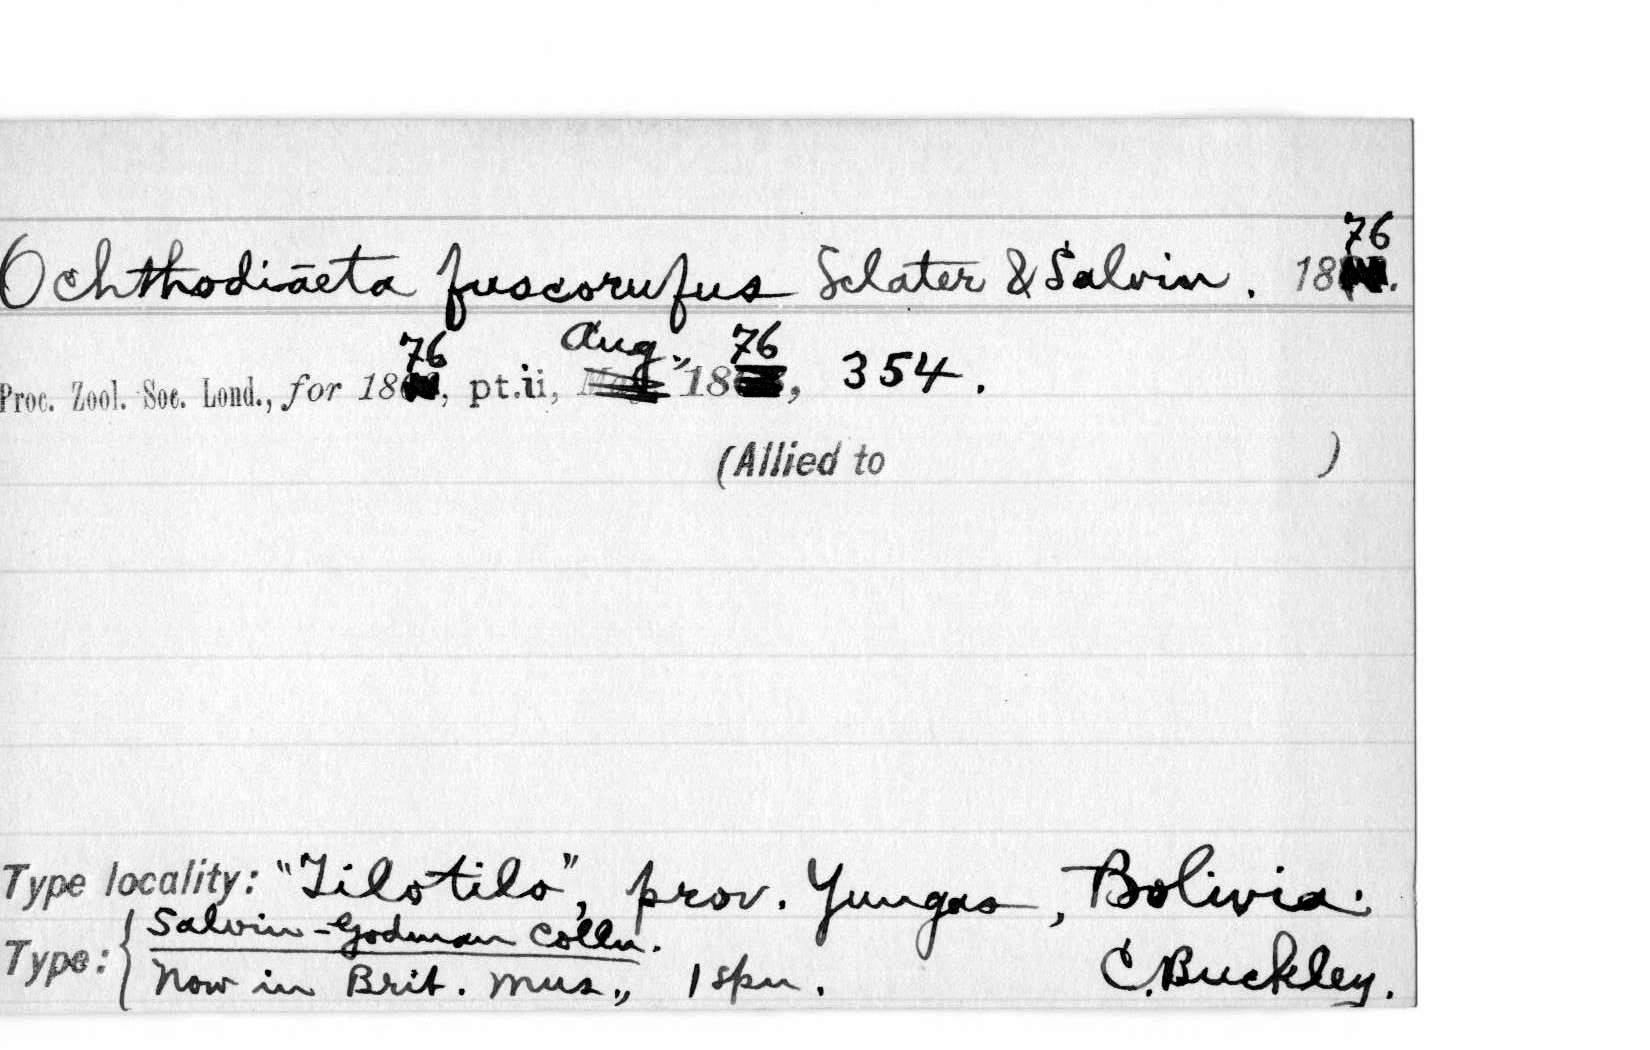 Ochthodiaeta fuscorufus Sclater & Salvin. 1876.
Proc. Zool. Soc. Lond., for 1876, pt.ii, Aug., 1876, 354.
(Allied to )
Type locality: "Tilotilo", prov. Yungas, Bolivia.
Type: { Salvin-Godman Colln.
Now in Brit. Mus., 1 spn. C. Buckley.